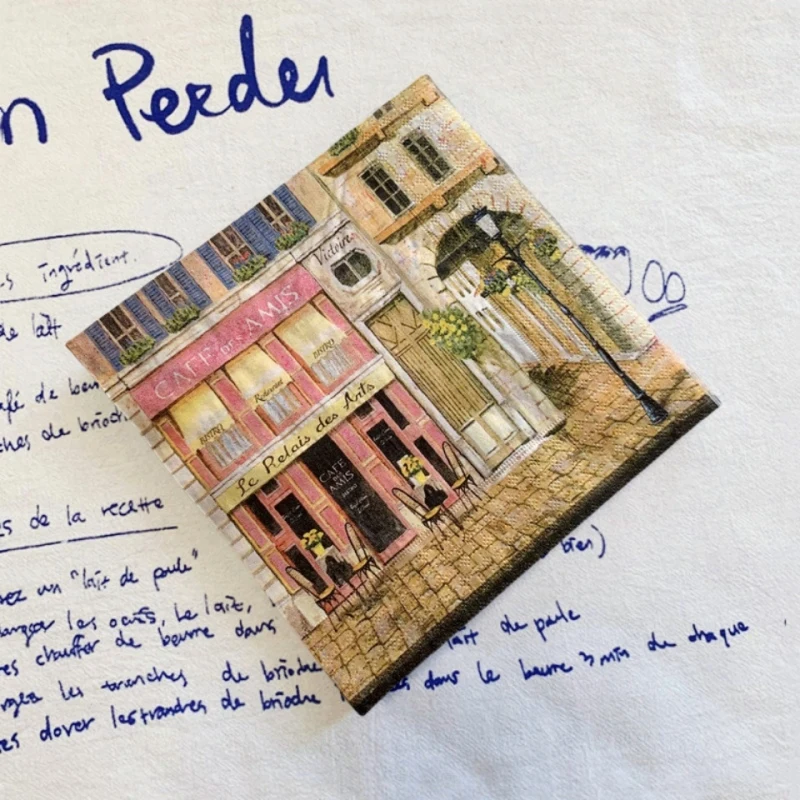 n Perdu
s ingrédient.
de lait
afé de beu
ches de brioch
es de la recette
rez un "lait de poule"
langer les oeufs, le lait,
bien)
es chauffer de beurre dans
lait de poule
rgez les tranches de brioche
es dorer les tranches de brioche
es dans le beurre 3 min de chaque
Victoire
CAFÉ DES AMIS
BISTRO
Restaurant
BISTRO
Le Relais des Arts
CAFÉ
DES
AMIS